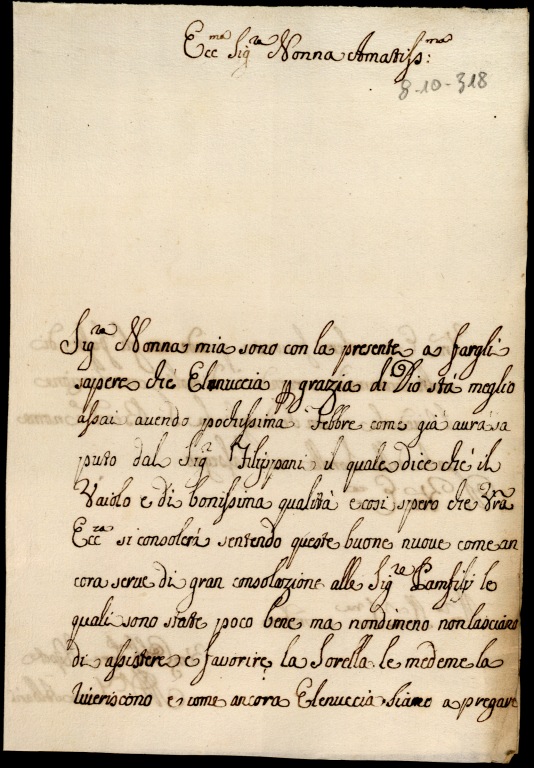 Ecc.ma Sig.ra Nonna Amatiss.ma:
8-10-318
Sig.ra Nonna mia sono con la presente a fargli
sapere che Elenuccia p grazia di Dio stà meglio
assai auendo pochissima febbre come già aurà sa
puto dal Sig.r Filippani il quale dice che il
Vaiolo e di bonissima qualità e così spero che Vra
Ecc.za si consolerà sentendo queste buone nuoue come an
cora serue di gran consolazione alle Sig.re Pamfilj le
quali sono state poco bene ma nondimeno non lasciano
di assistere e fauorire la Sorella le medeme la
riueriscono e come ancora Elenuccia siamo a pregare